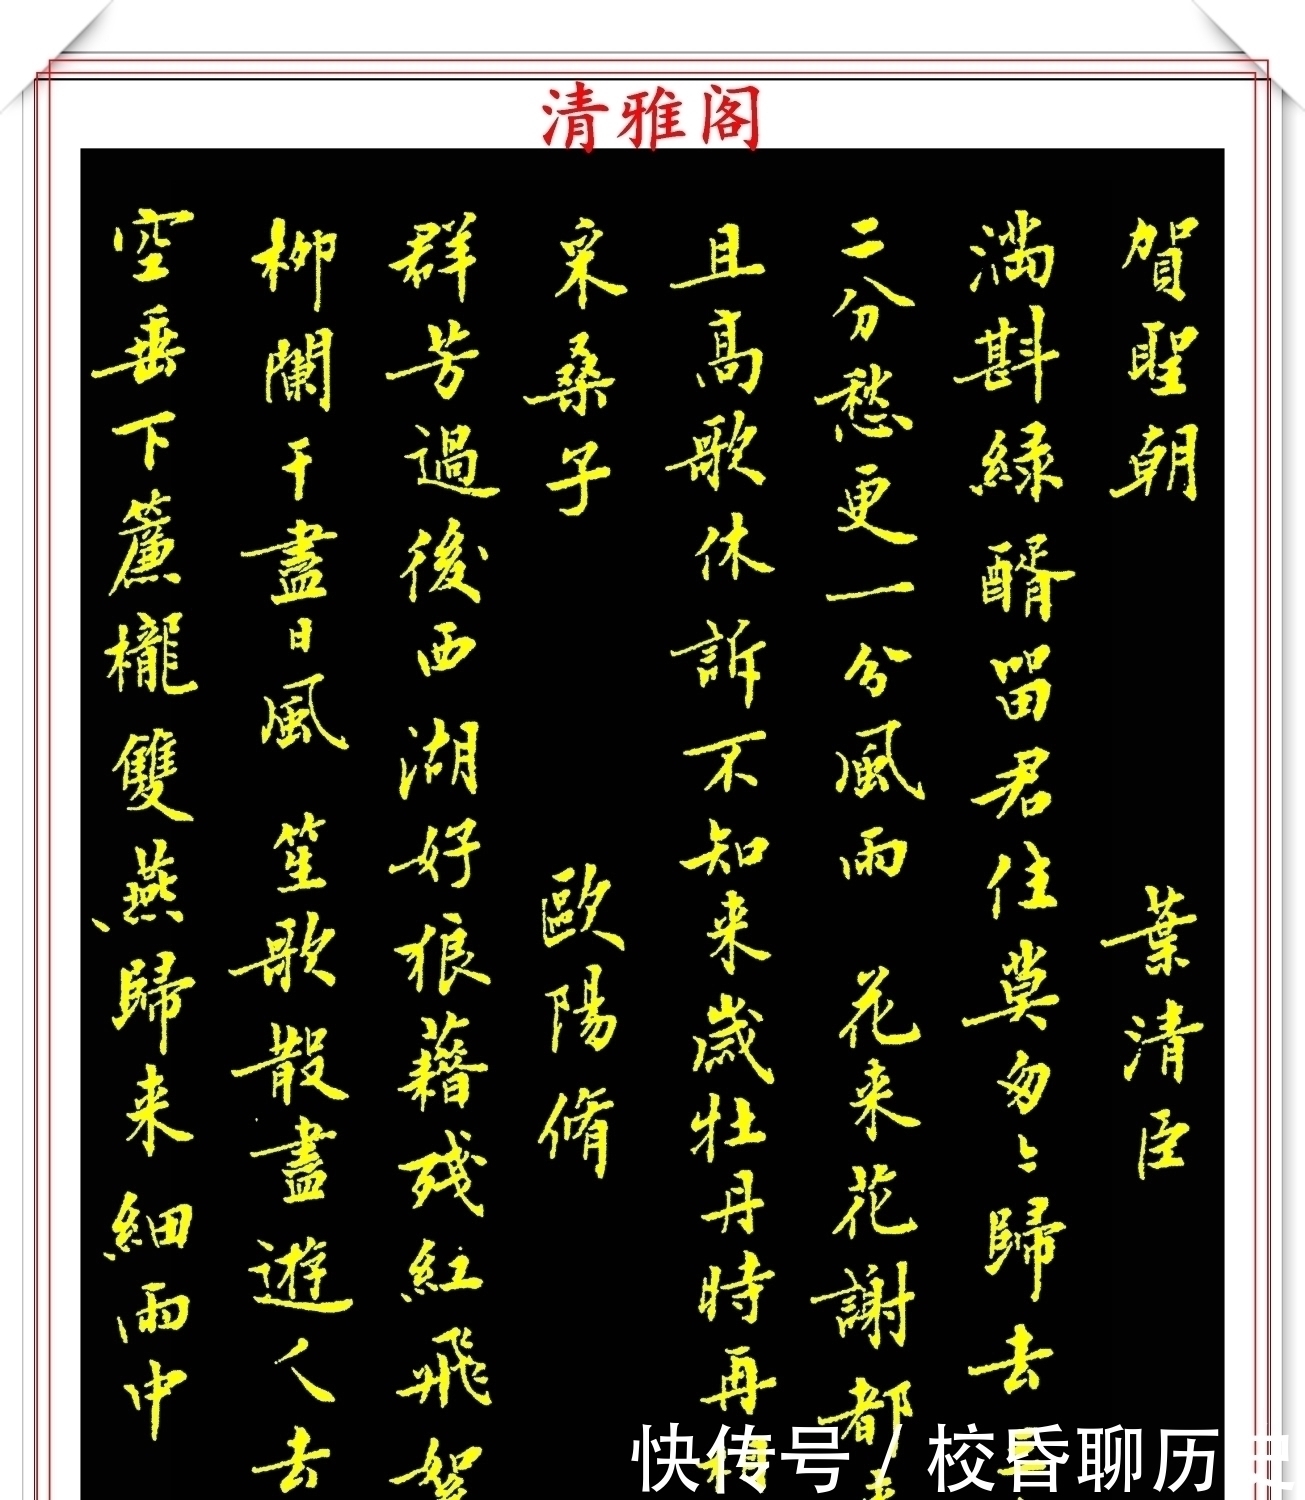 清雅阁
賀聖朝 葉清臣
滿斟緑醑留君住莫匆〻歸去三
二分愁更一分風雨 花来花謝都来
且高歌休訴不知来歲牡丹時再相
采桑子 歐陽脩
群芳過後西湖好狼藉残紅飛絮
柳闌干盡日風 笙歌散盡遊人去
空垂下簾櫳雙燕歸来細雨中
快传号/校昏聊历史